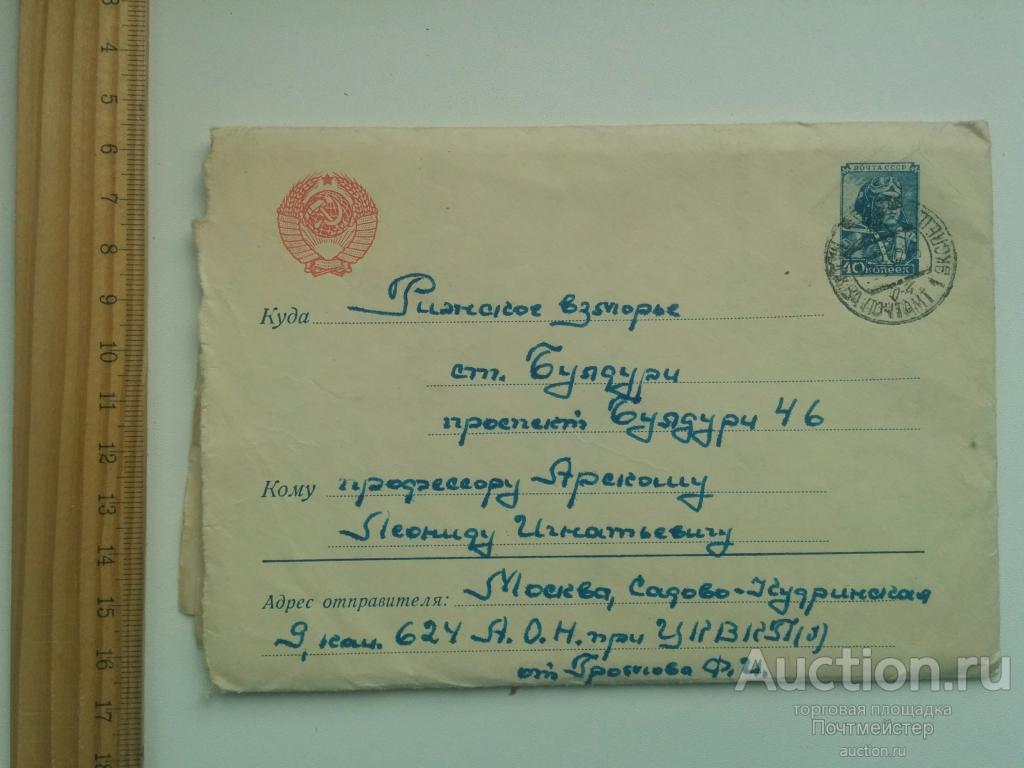 ПОЧТА СССР
40 КОПЕЕК
Куда Рижское взморье
ст. Булдури
проспект Булдури 46
Кому профессору Ярскому
Леониду Игнатьевичу
Адрес отправителя: Москва, Садово-Кудринская
9, кам. 624 А.О.Н. при ЦК ВКП(б)
от Громова Ф.И.
Auction.ru
торговая площадка
Почтмейстер
auction.ru
3
4
5
6
7
8
9
10
11
12
13
14
15
16
17
18